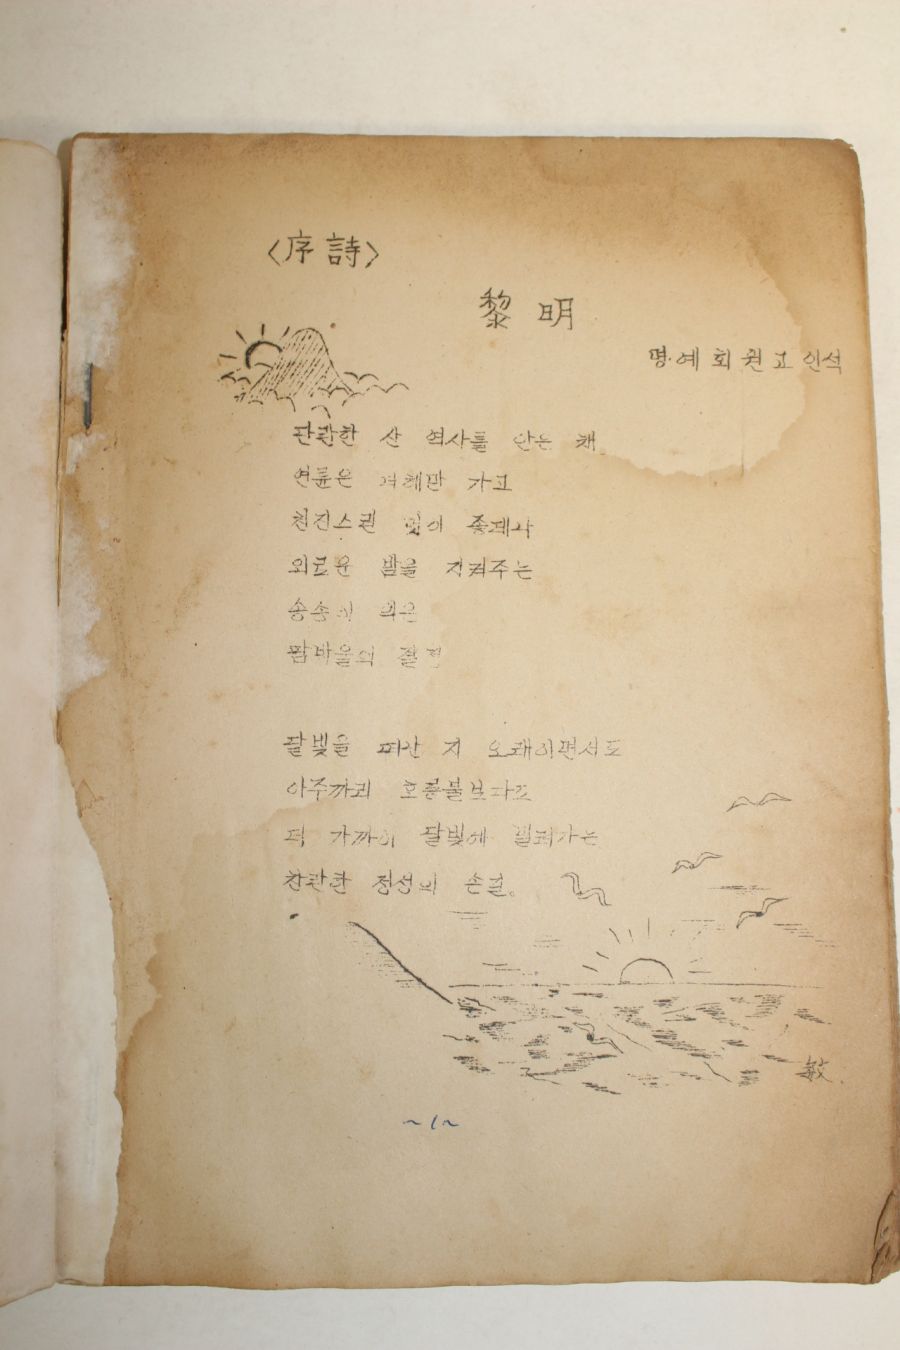 〈序詩〉
黎明
명·예회원고인석
찬란한 산 역사를 안은 채
연륜은 더해만 가고
천진스런 잎이
외로운 밤을 지켜주는
송송이
밤바울의
달빛을 떠난 지
아주까리 호롱불보다도
더 가까이 달빛에 빌려가는
찬란한 정성의 손길.
敏.
~1~